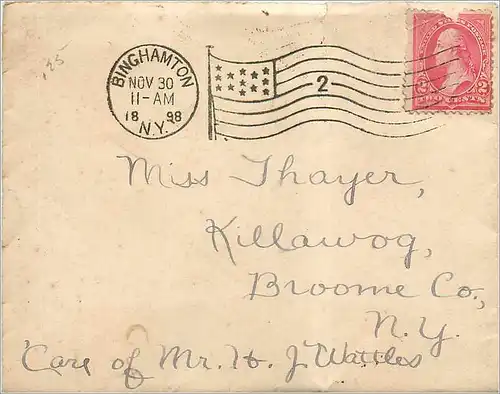 BINGHAMTON
NOV 30
11-AM
1898
N.Y.
2
2 2
TWO CENTS
Miss Thayer,
Killawog,
Broome Co.,
N.Y.
Care of Mr. H. J. Wattles